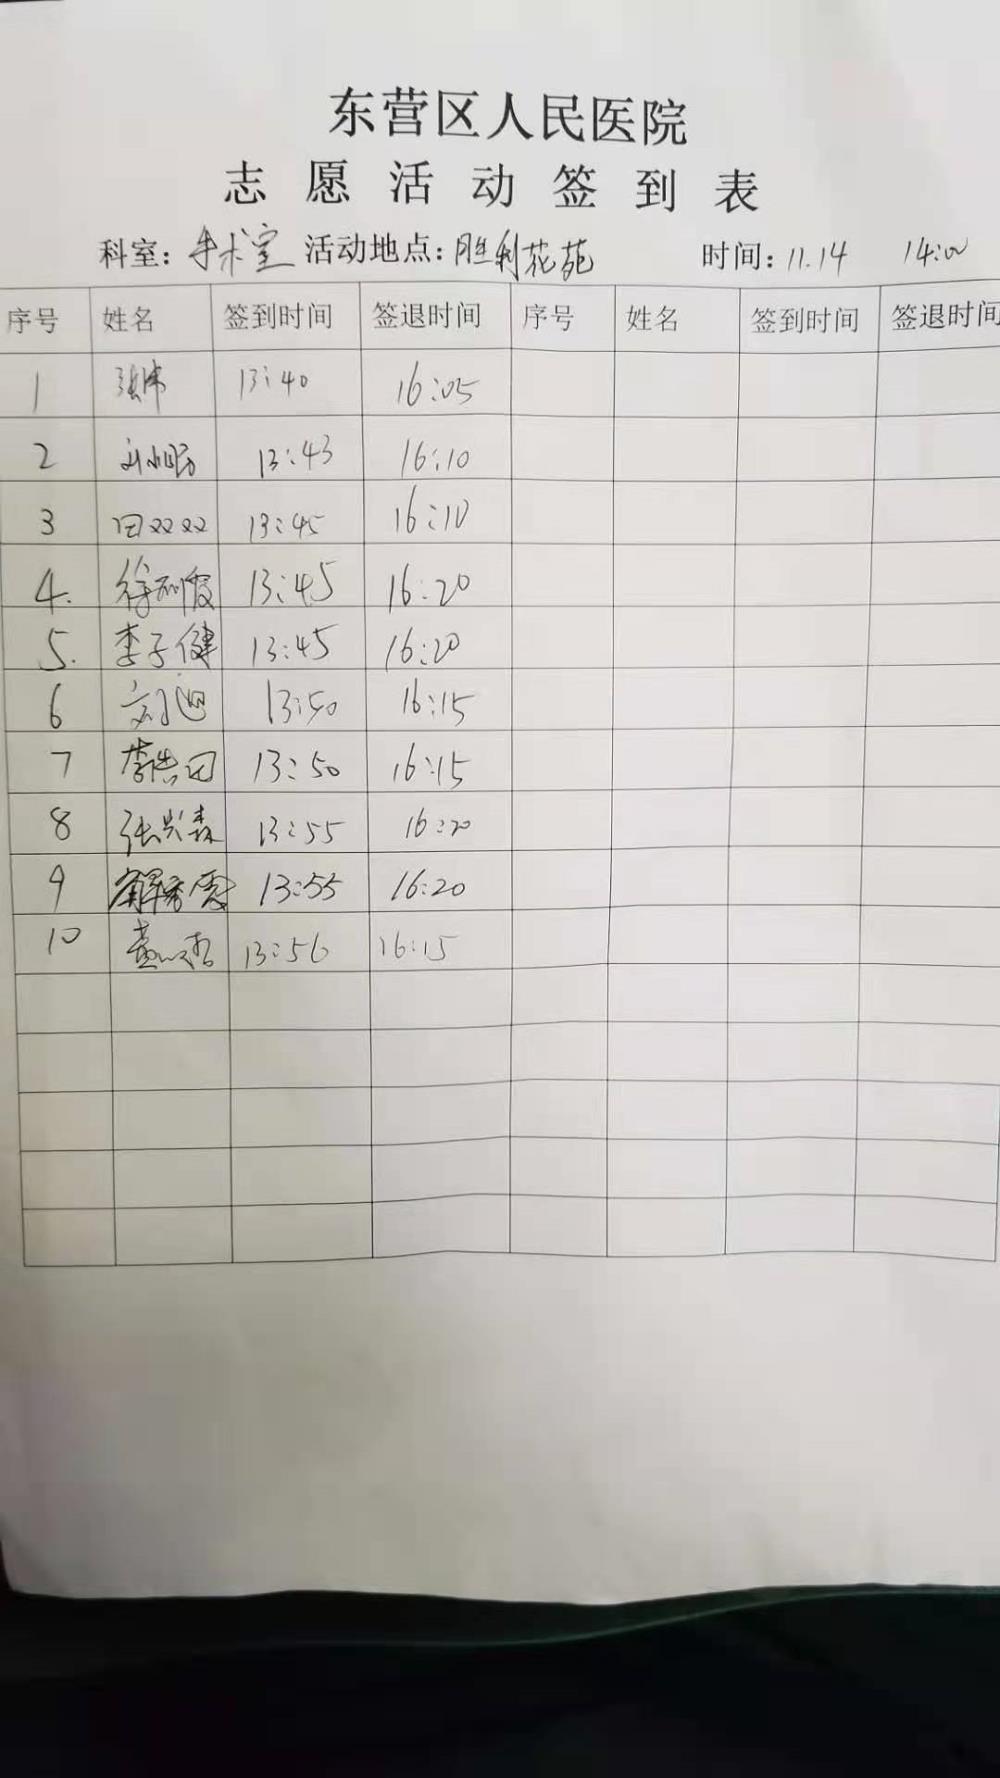 东营区人民医院
志愿活动签到表
科室：手术室 活动地点：胜利花苑 时间：11.14 14:00
序号 姓名 签到时间 签退时间 序号 姓名 签到时间 签退时间
1 张伟 13:40 16:05
2 刘 13:43 16:10
3 田双双 13:45 16:10
4. 徐利霞 13:45 16:20
5. 李子健 13:45 16:20
6 刘迎 13:50 16:15
7 李浩田 13:50 16:15
8 张兴森 13:55 16:20
9 解秀霞 13:55 16:20
10 13:56 16:15